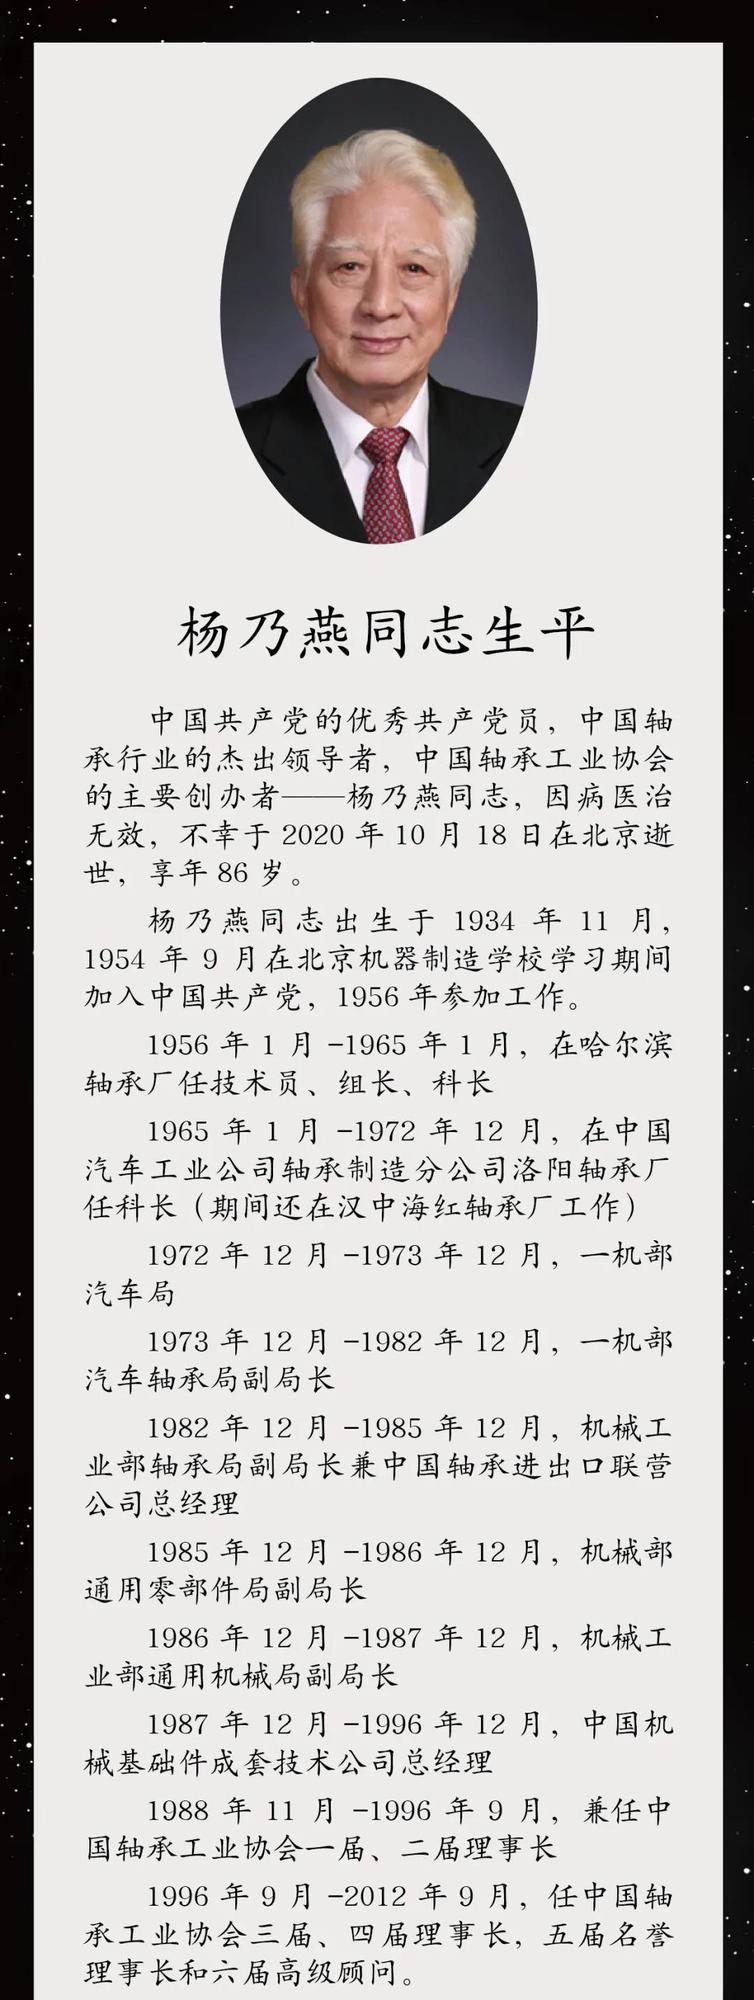 杨乃燕同志生平
中国共产党的优秀共产党员，中国轴
承行业的杰出领导者，中国轴承工业协会
的主要创办者——杨乃燕同志，因病医治
无效，不幸于 2020 年 10 月 18 日在北京逝
世，享年 86 岁。
杨乃燕同志出生于 1934 年 11 月，
1954 年 9 月在北京机器制造学校学习期间
加入中国共产党，1956 年参加工作。
1956 年 1 月 -1965 年 1 月，在哈尔滨
轴承厂任技术员、组长、科长
1965 年 1 月 -1972 年 12 月，在中国
汽车工业公司轴承制造分公司洛阳轴承厂
任科长（期间还在汉中海红轴承厂工作）
1972 年 12 月 -1973 年 12 月，一机部
汽车局
1973 年 12 月 -1982 年 12 月，一机部
汽车轴承局副局长
1982 年 12 月 -1985 年 12 月，机械工
业部轴承局副局长兼中国轴承进出口联营
公司总经理
1985 年 12 月 -1986 年 12 月，机械部
通用零部件局副局长
1986 年 12 月 -1987 年 12 月，机械工
业部通用机械局副局长
1987 年 12 月 -1996 年 12 月，中国机
械基础件成套技术公司总经理
1988 年 11 月 -1996 年 9 月，兼任中
国轴承工业协会一届、二届理事长
1996 年 9 月 -2012 年 9 月，任中国轴
承工业协会三届、四届理事长，五届名誉
理事长和六届高级顾问。